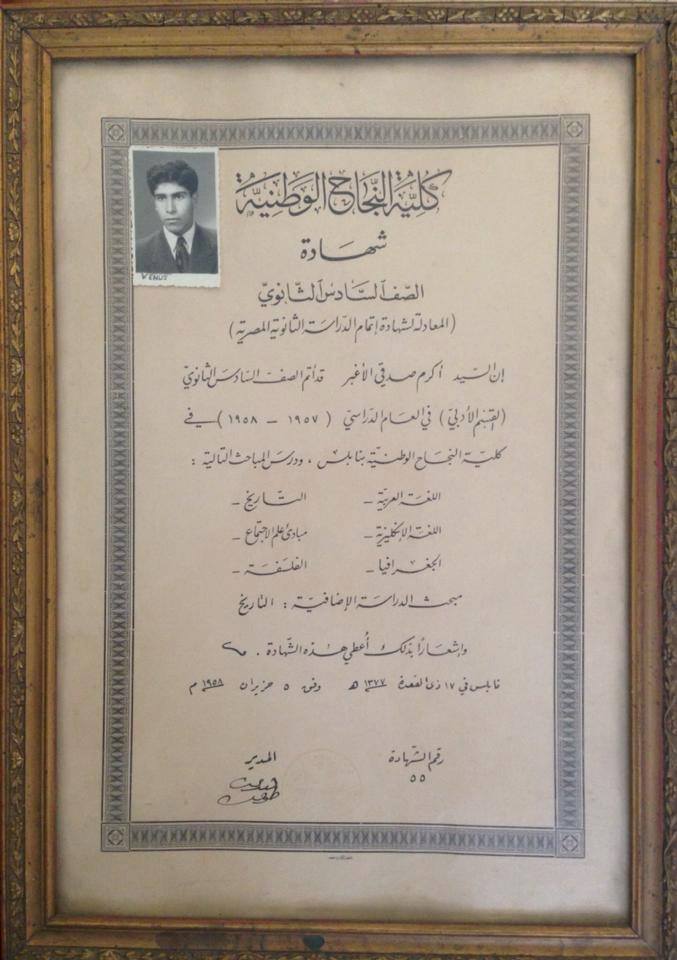 كلية النجاح الوطنية
شهادة
الصف السادس الثانوي
(المعادلة لشهادة إتمام الدراسة الثانوية المصرية)
إن السيد أكرم صدقي الأغبر قد أتم الصف السادس الثانوي
(القسم الأدبي) في العام الدراسي (١٩٥٧ – ١٩٥٨) في
كلية النجاح الوطنية بنابلس ، ودرس المباحث التالية :
اللغة العربية – التاريخ –
اللغة الإنكليزية – مبادئ علم الاجتماع –
الجغرافيا – الفلسفة –
مبحث الدراسة الإضافية : التاريخ
وإشعاراً بذلك أُعطي هذه الشهادة .
نابلس في ١٧ ذي القعدة ١٣٧٧ هـ وفق ٥ حزيران ١٩٥٨ م
رقم الشهادة المدير
٥٥
VENUS